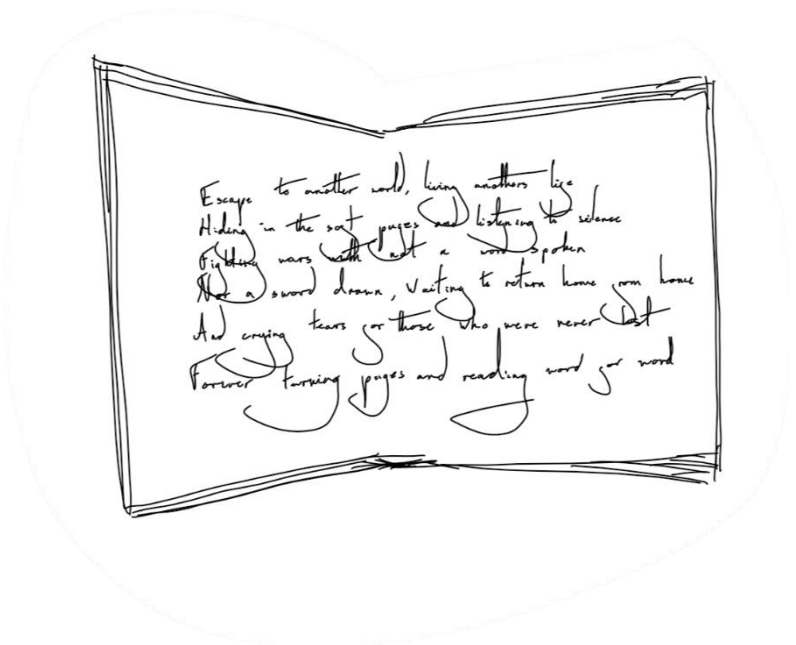 Escape to another world, living anothers life
Hiding in the soft pages and listening to silence
Fighting wars with not a word spoken
Nor a sword drawn, waiting to return home from home
And crying tears for those who were never lost
Forever turning pages and reading word for word